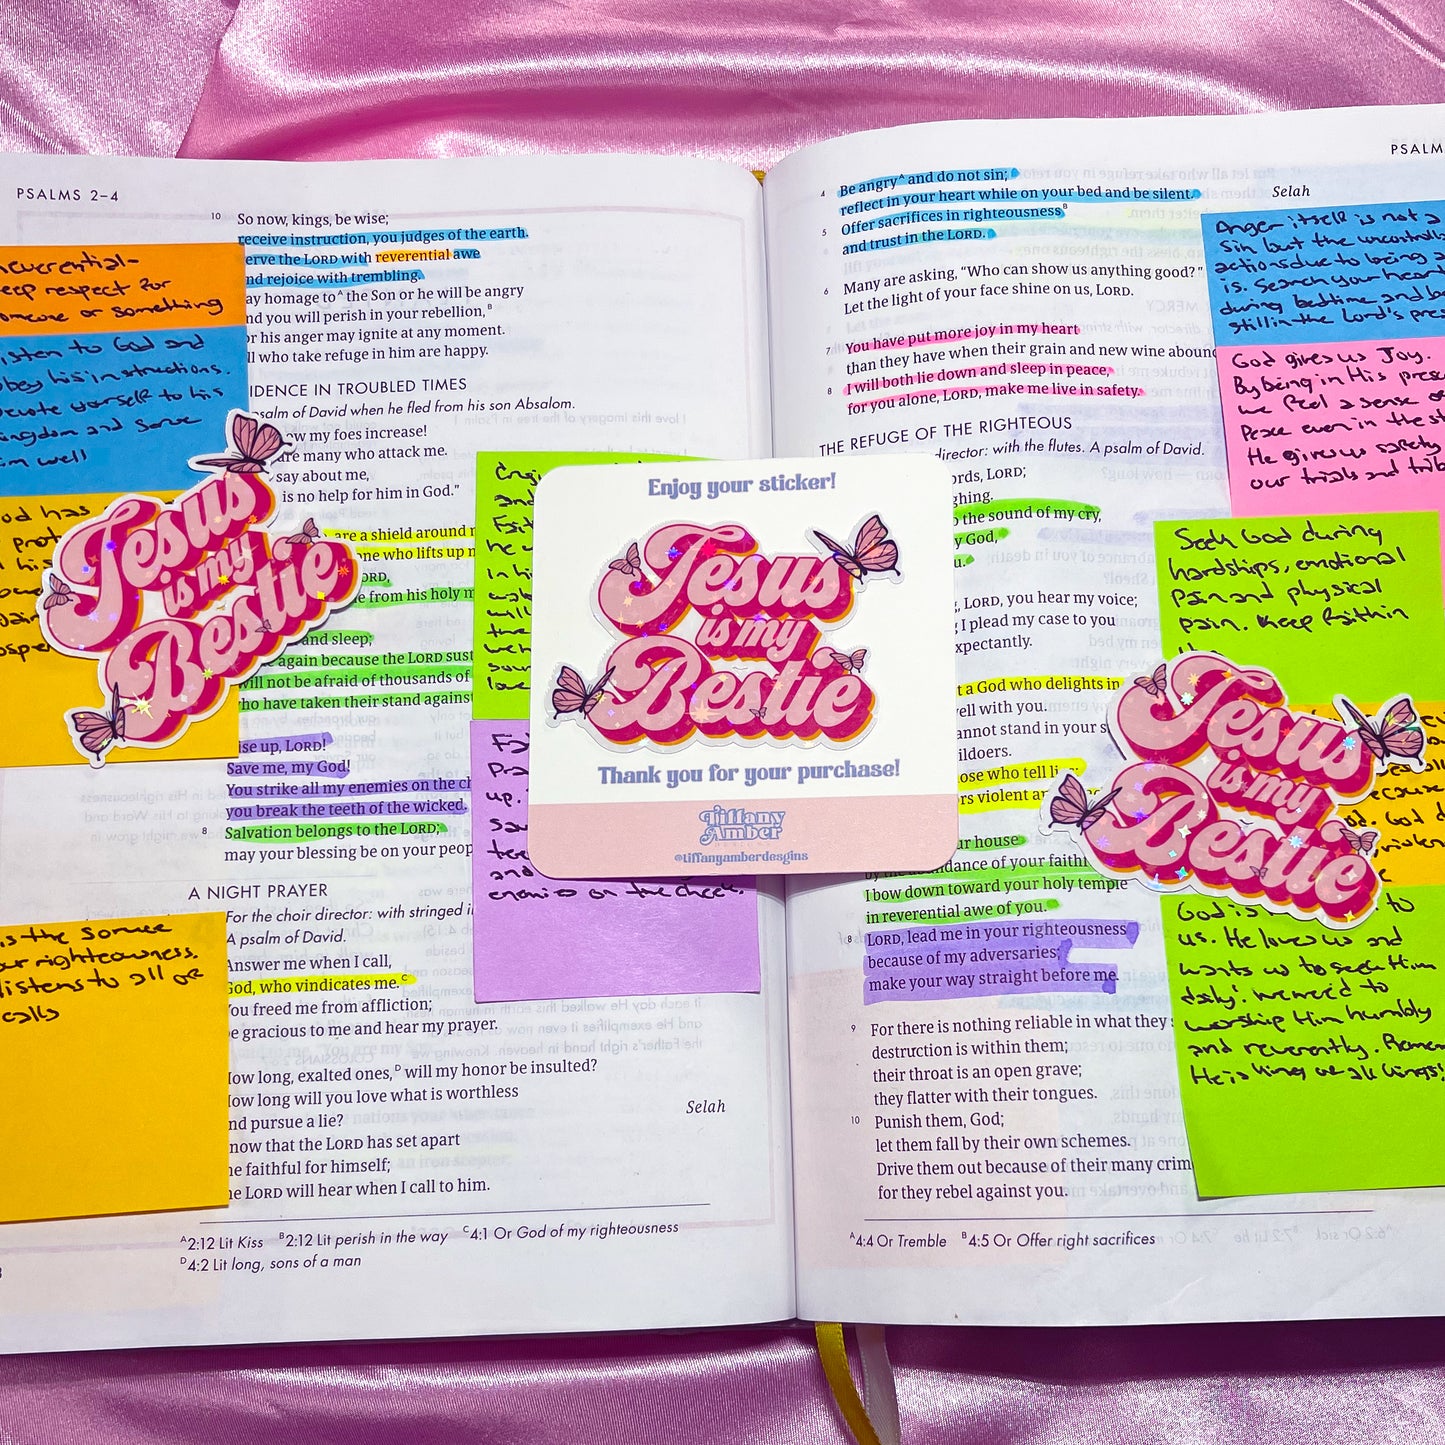 PSALMS 2–4
10 So now, kings, be wise;
receive instruction, you judges of the earth.
erve the LORD with reverential awe
nd rejoice with trembling.
ay homage to^A the Son or he will be angry
nd you will perish in your rebellion,^B
r his anger may ignite at any moment.
ll who take refuge in him are happy.
IDENCE IN TROUBLED TIMES
psalm of David when he fled from his son Absalom.
ow my foes increase!
are many who attack me.
say about me,
is no help for him in God."
are a shield around
one who lifts up
ORD,
e from his holy
and sleep;
again because the LORD sust
will not be afraid of thousands of
ho have taken their stand against
ise up, LORD!
Save me, my God!
You strike all my enemies on the ch
you break the teeth of the wicked.
8 Salvation belongs to the LORD;
may your blessing be on your peop
A NIGHT PRAYER
For the choir director: with stringed i
A psalm of David.
Answer me when I call,
God, who vindicates me.^C
You freed me from affliction;
e gracious to me and hear my prayer.
How long, exalted ones,^D will my honor be insulted?
How long will you love what is worthless
nd pursue a lie?
Selah
now that the LORD has set apart
he faithful for himself;
he LORD will hear when I call to him.
^A2:12 Lit Kiss ^B2:12 Lit perish in the way ^C4:1 Or God of my righteousness
^D4:2 Lit long, sons of a man
reverential-
eep respect for
omeone or something
isten to God and
obey his instructions.
evote yourself to his
ingdom and serve
im well
od has
prot
his
is the source
our righteousness.
listens to all of
calls
Jesus
is my
Bestie
and
up.
and
enemies on the cheek.
Enjoy your sticker!
Jesus
is my
Bestie
Thank you for your purchase!
Tiffany
Amber
DESIGNS
@tiffanyamberdesgins
PSALM
4 Be angry^A and do not sin;
reflect in your heart while on your bed and be silent.
Selah
5 Offer sacrifices in righteousness^B
and trust in the LORD.
6 Many are asking, "Who can show us anything good?"
Let the light of your face shine on us, LORD.
7 You have put more joy in my heart
than they have when their grain and new wine abound
8 I will both lie down and sleep in peace,
for you alone, LORD, make me live in safety.
THE REFUGE OF THE RIGHTEOUS
director: with the flutes. A psalm of David.
ords, LORD;
ghing.
o the sound of my cry,
y God,
u.
g, LORD, you hear my voice;
g I plead my case to you
xpectantly.
t a God who delights in
ell with you.
annot stand in your
ildoers.
ose who tell
rs violent
ur house
by the abundance of your faith
I bow down toward your holy temple
in reverential awe of you.
8 LORD, lead me in your righteousness
because of my adversaries;
make your way straight before me.
9 For there is nothing reliable in what they
destruction is within them;
their throat is an open grave;
they flatter with their tongues.
10 Punish them, God;
let them fall by their own schemes.
Drive them out because of their many crim
for they rebel against you.
^A4:4 Or Tremble ^B4:5 Or Offer right sacrifices
Anger itself is not a
sin but the uncontrolla
actions due to being a
is. Search your heart
during bedtime and be
still in the Lord's pres
God gives us Joy.
By being in His prese
we feel a sense of
Peace even in the st
He gives us safety
our trials and trib
Seek God during
hardships, emotional
Pain and physical
pain. Keep faith in
Jesus
is my
Bestie
God is to
us. He loves us and
wants us to seek Him
daily! We need to
worship Him humbly
and reverently. Remem
He is king of all kings!